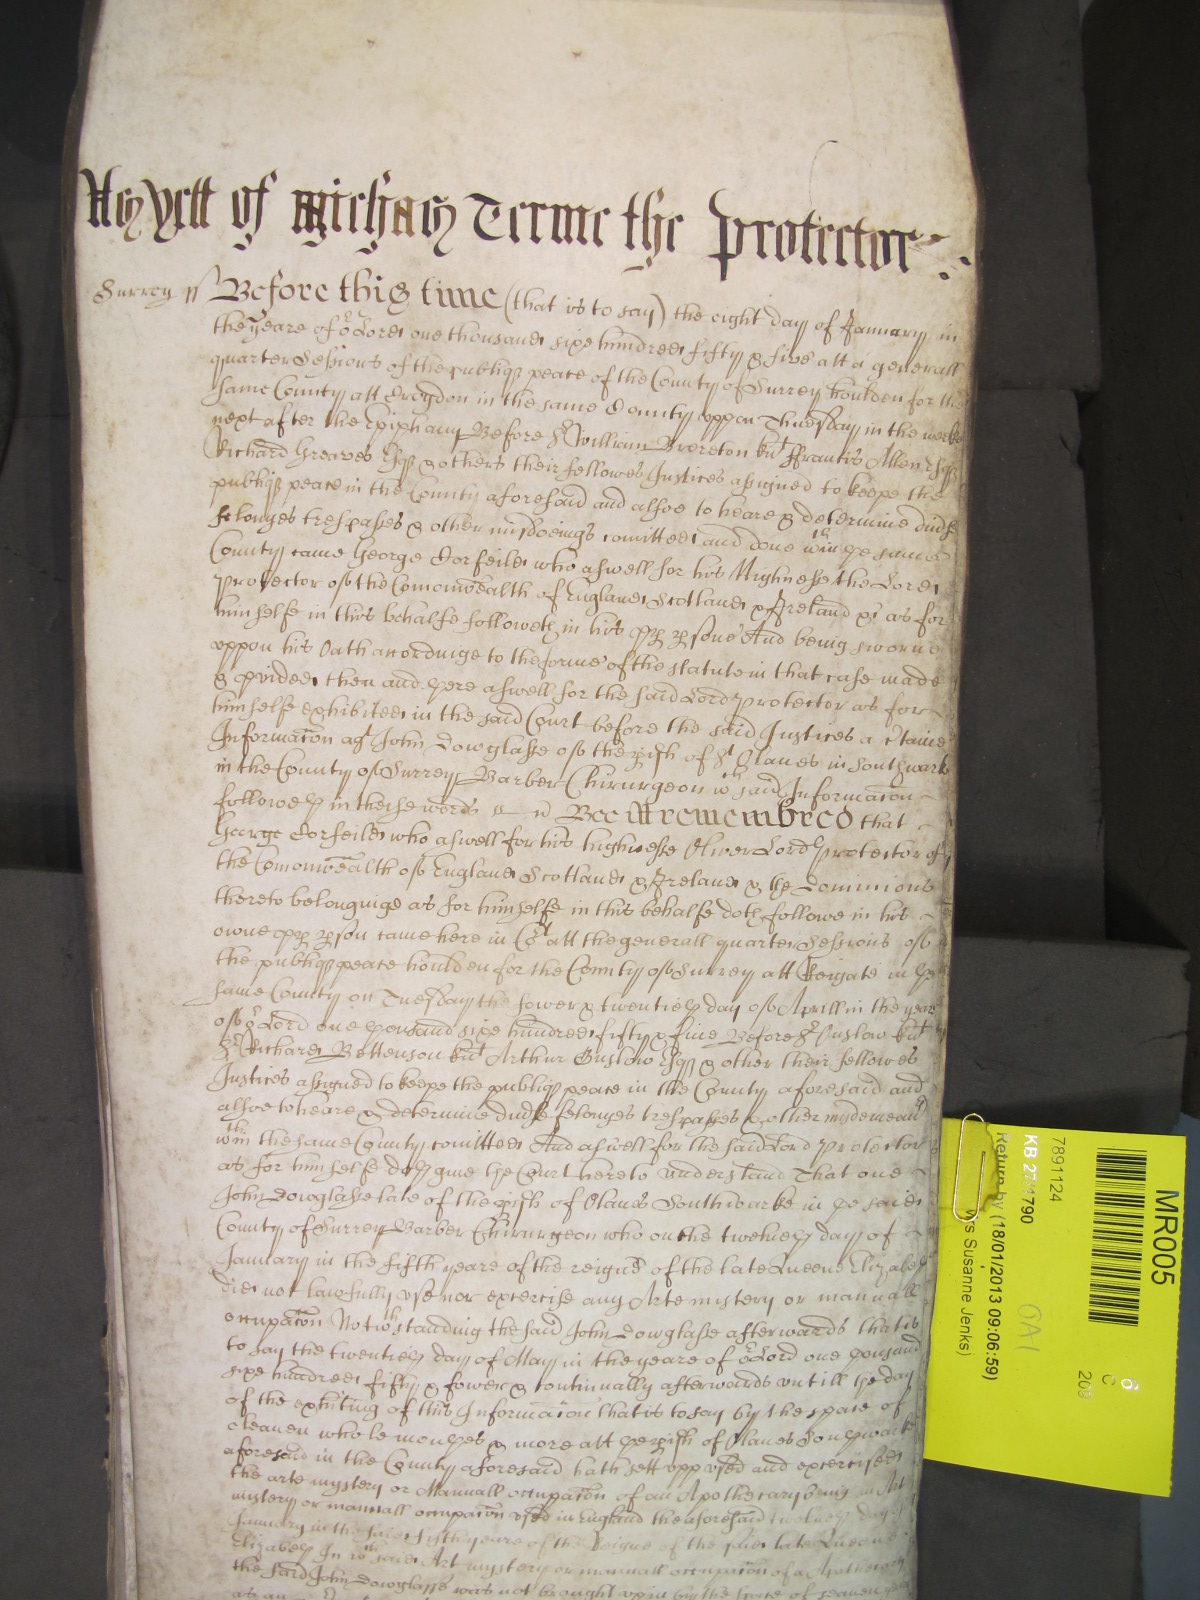 yett of Michas Terme the Protector
Surrey ss Before this time (that is to say) the eight day of January in
the yeare of or Lord one thousand sixe hundred fifty & five att a generall
quarter Sessions of the publiqs peace of the County of Surrey houlden for the
same County att Croydon in the same County uppon Thuesday in the weeke
next after the Epiphany Before Sr William Brereton knt Francis Allen Esqs
Richard Greaves Esqs & others their fellowes Justices assigned to keepe the
publiqs peace in the County aforesaid and alsoe to heare & determine divse
felonyes trespasses & other misdoeings comitted and done wthin ye same
County came George Corfeild who aswell for his Highnesse the Lord
Protector of the Comonwealth of England Scotland & Ireland &c as for
himselfe in this behalfe followeth in his ppp pson And being sworne
uppon his Oath accordinge to the forme of the statute in that case made
& pvided then and there aswell for the said Lord Protector as for
himselfe exhibited in the said Court before the said Justices a ctaine
Informacon agt John Dowglasse of the pish of St Olaves in Southwark
in the County of Surrey Barber Chirurgeon wch said Informacon
followeth in theise words Bee itt remembred that
George Corfeild who aswell for his highnesse Oliver Lord Protector of
the Comonwealth of England Scotland & Ireland & the Dominions
thereto belonginge as for himselfe in this behalfe doth followe in his
owne ppp pson came here in Crt att the generall quarter Sessions of
the publiqs peace houlden for the County of Surrey att Reigate in the
same County on Tuesday the fower & twentieth day of Aprill in the yeare
of or Lord one thousand sixe hundred fifty & five Before Sr Onslow knt
Sr Richard Bettenson knt Arthur Onslow Esqs & other their fellowes
Justices assigned to keepe the publiqs peace in the County aforesaid and
alsoe to heare & determine divse felonyes trespasses & other misdemeanrs
wthin the same County comitted And aswell for the said Lord Protector
as for himselfe doth give the Court here to understand That one
John Dowglasse late of the pish of Olaves Southwarke in ye said
County of Surrey Barber Chirurgeon who on the twelveth day of
January in the fifth yeare of the reigne of the late Queene Elizabeth
did not lawfully use nor exercise any Arte mistery or manuall
occupacon Notwthstanding the said John Dowglasse afterwards that is
to say the twentieth day of May in the yeare of or Lord one thousand
sixe hundred fifty & fower & continually afterwards untill the day
of the exhiting of this Informacon that is to say by the space of
eleaven whole monthes & more att the pish of Olaves Southwarke
aforesaid in the County aforesaid hath sett upp used and exercised
the arte mystery or Manuall occupacon of an Apothecary being an Art
mistery or manuall occupacon used in England the aforesaid twelveth day of
January in the said fifth yeare of the Reigne of the said late Queene
Elizabeth In wch said Art mystery or manuall occupacon of a Apothecary
the said John Dowglasse was not brought upp in by the space of seaven yeares
as an
MR005
7891124
KB 27/1790
Return by (18/01/2013 09:06:59)
Susanne Jenks)